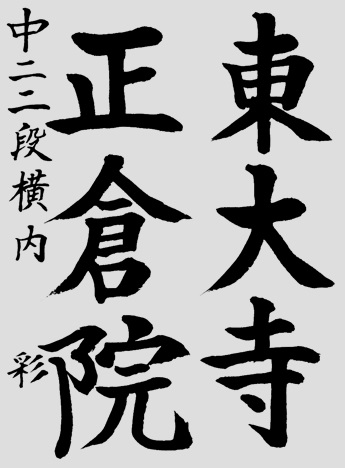 東大寺
正倉院
中二二段横内 彩